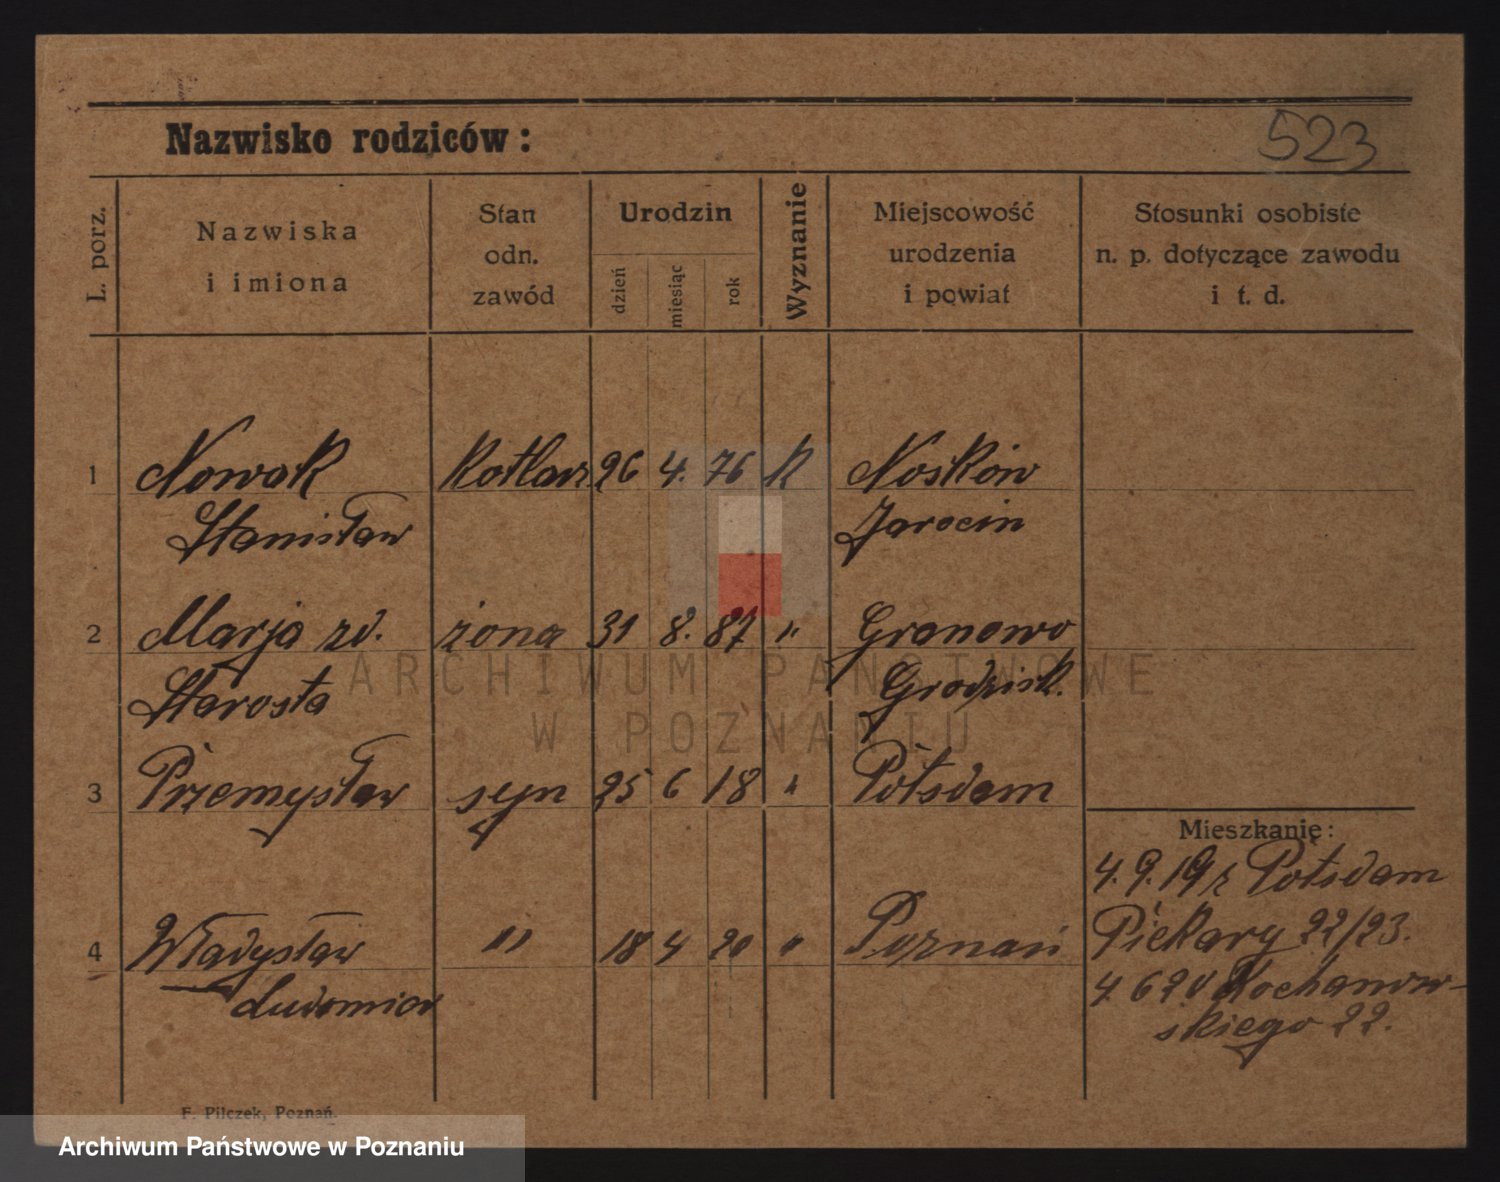 Nazwisko rodziców:
523
L. porz.
Nazwiska
i imiona
Stan
odn.
zawód
Urodzin
dzień
miesiąc
rok
Wyznanie
Miejscowość
urodzenia
i powiat
Stosunki osobiste
n. p. dotyczące zawodu
i t. d.
1 Nowak kotlarz 26 4. 76 k Nosków
Stanisław Jarocin
2 Marja zd. żona 31 8. 87 " Granowo
Starosta Grodzisk.
3 Przemysław syn 25 6 18 " Potsdam
Mieszkanie:
4. 9. 19 z Potsdam
Piekary 22/23.
4 Władysław " 18 4 20 " Poznań
Ludomior
4. 6 20 Kochanow-
skiego 22.
F. Pilczek, Poznań.
ARCHIWUM PAŃSTWOWE
W POZNANIU
Archiwum Państwowe w Poznaniu